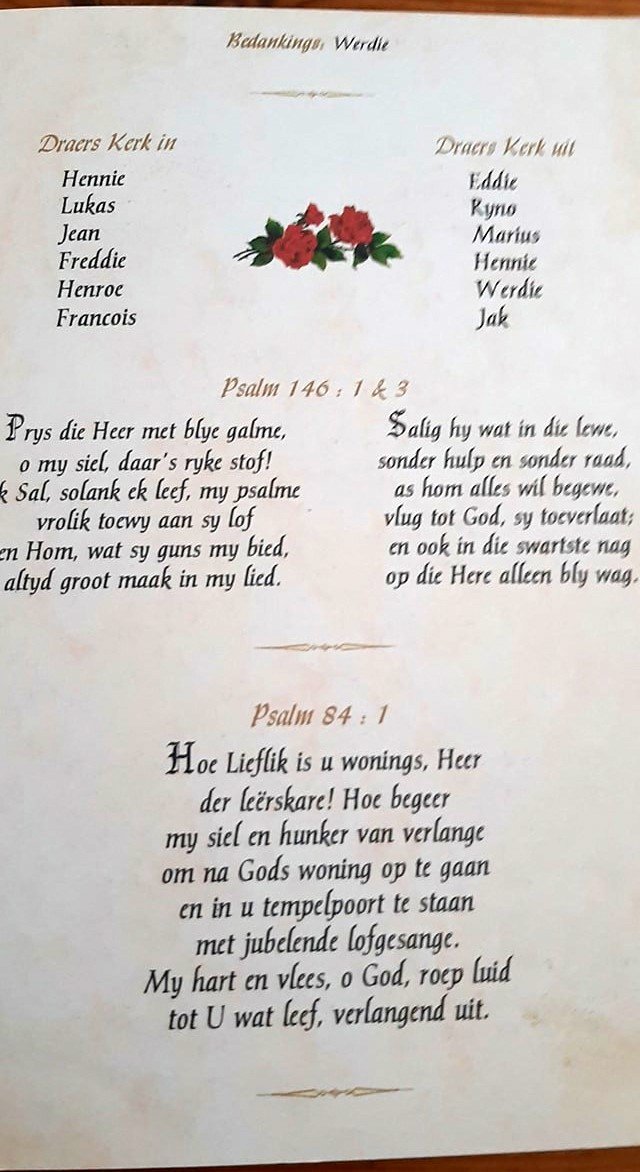 Bedankings: Werdie
Draers Kerk in
Hennie
Lukas
Jean
Freddie
Henroe
Francois
Draers Kerk uit
Eddie
Ryno
Marius
Hennie
Werdie
Jak
Psalm 146 : 1 & 3
Prys die Heer met blye galme,
o my siel, daar's ryke stof!
k Sal, solank ek leef, my psalme
vrolik toewy aan sy lof
en Hom, wat sy guns my bied,
altyd groot maak in my lied.
Salig hy wat in die lewe,
sonder hulp en sonder raad,
as hom alles wil begewe,
vlug tot God, sy toeverlaat;
en ook in die swartste nag
op die Here alleen bly wag.
Psalm 84 : 1
Hoe Lieflik is u wonings, Heer
der leërskare! Hoe begeer
my siel en hunker van verlange
om na Gods woning op te gaan
en in u tempelpoort te staan
met jubelende lofgesange.
My hart en vlees, o God, roep luid
tot U wat leef, verlangend uit.